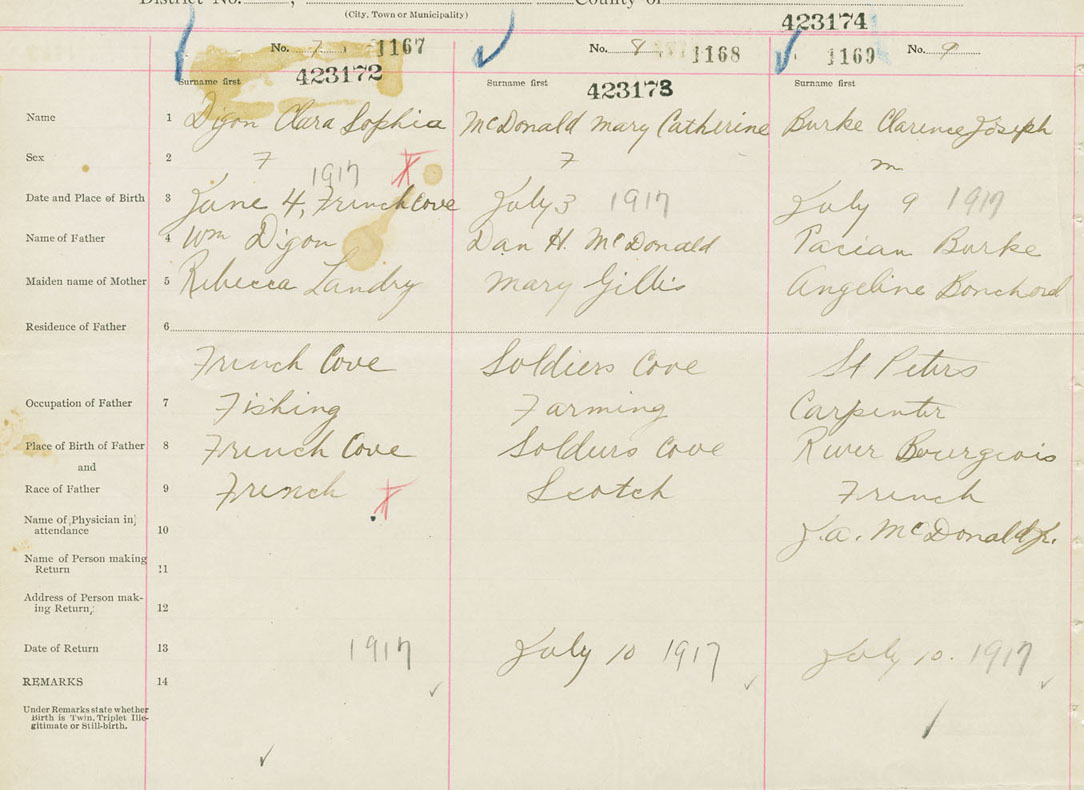 District No. , County of
(City, Town or Municipality)
423174
No. 7 1167 No. 8 1168 1169 No. 9
Surname first 423172 Surname first 423173 Surname first
Name 1 Digon Clara Sophia McDonald Mary Catherine Burke Clarence Joseph
Sex 2 F F M
1917
Date and Place of Birth 3 June 4, French Cove July 3 1917 July 9 1917
Name of Father 4 Wm Digon Dan H. McDonald Pacian Burke
Maiden name of Mother 5 Rebecca Landry Mary Gillis Angeline Bonchord
Residence of Father 6
French Cove Soldiers Cove St Peters
Occupation of Father 7 Fishing Farming Carpenter
Place of Birth of Father 8 French Cove Soldiers Cove River Bourgeois
and
Race of Father 9 French Scotch French
Name of Physician in
attendance 10 J.A. McDonald Jr.
Name of Person making
Return 11
Address of Person mak-
ing Return, 12
Date of Return 13 1917 July 10 1917 July 10. 1917
REMARKS 14
Under Remarks state whether
Birth is Twin, Triplet Ille-
gitimate or Still-birth.